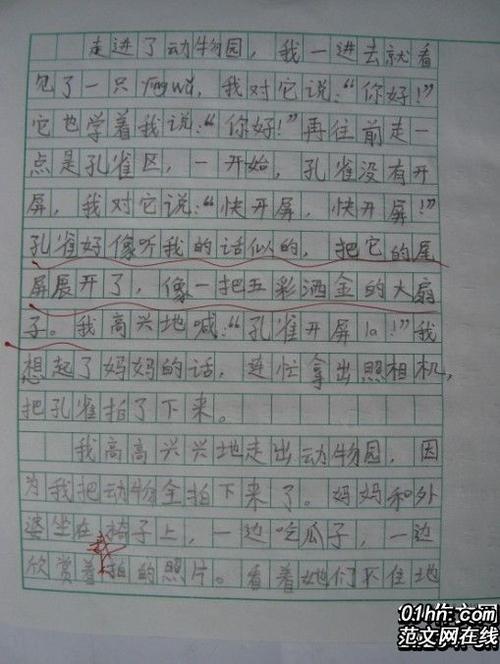 走进了动物园，我一进去就看
见了一只yīngwǔ，我对它说：“你好！”
它也学着我说：“你好！”再往前走一
点是孔雀区，一开始，孔雀没有开
屏，我对它说：“快开屏，快开屏！”
孔雀好像听我的话似的，把它的尾
屏展开了，像一把五彩洒金的大扇
子。我高兴地喊：“孔雀开屏la！”我
想起了妈妈的话，连忙拿出照相机，
把孔雀拍了下来。
我高高兴兴地走出动物园，因
为我把动物全拍下来了。妈妈和外
婆坐在椅子上，一边吃瓜子，一边
欣赏着拍的照片。看着她们不住地
范文网在线